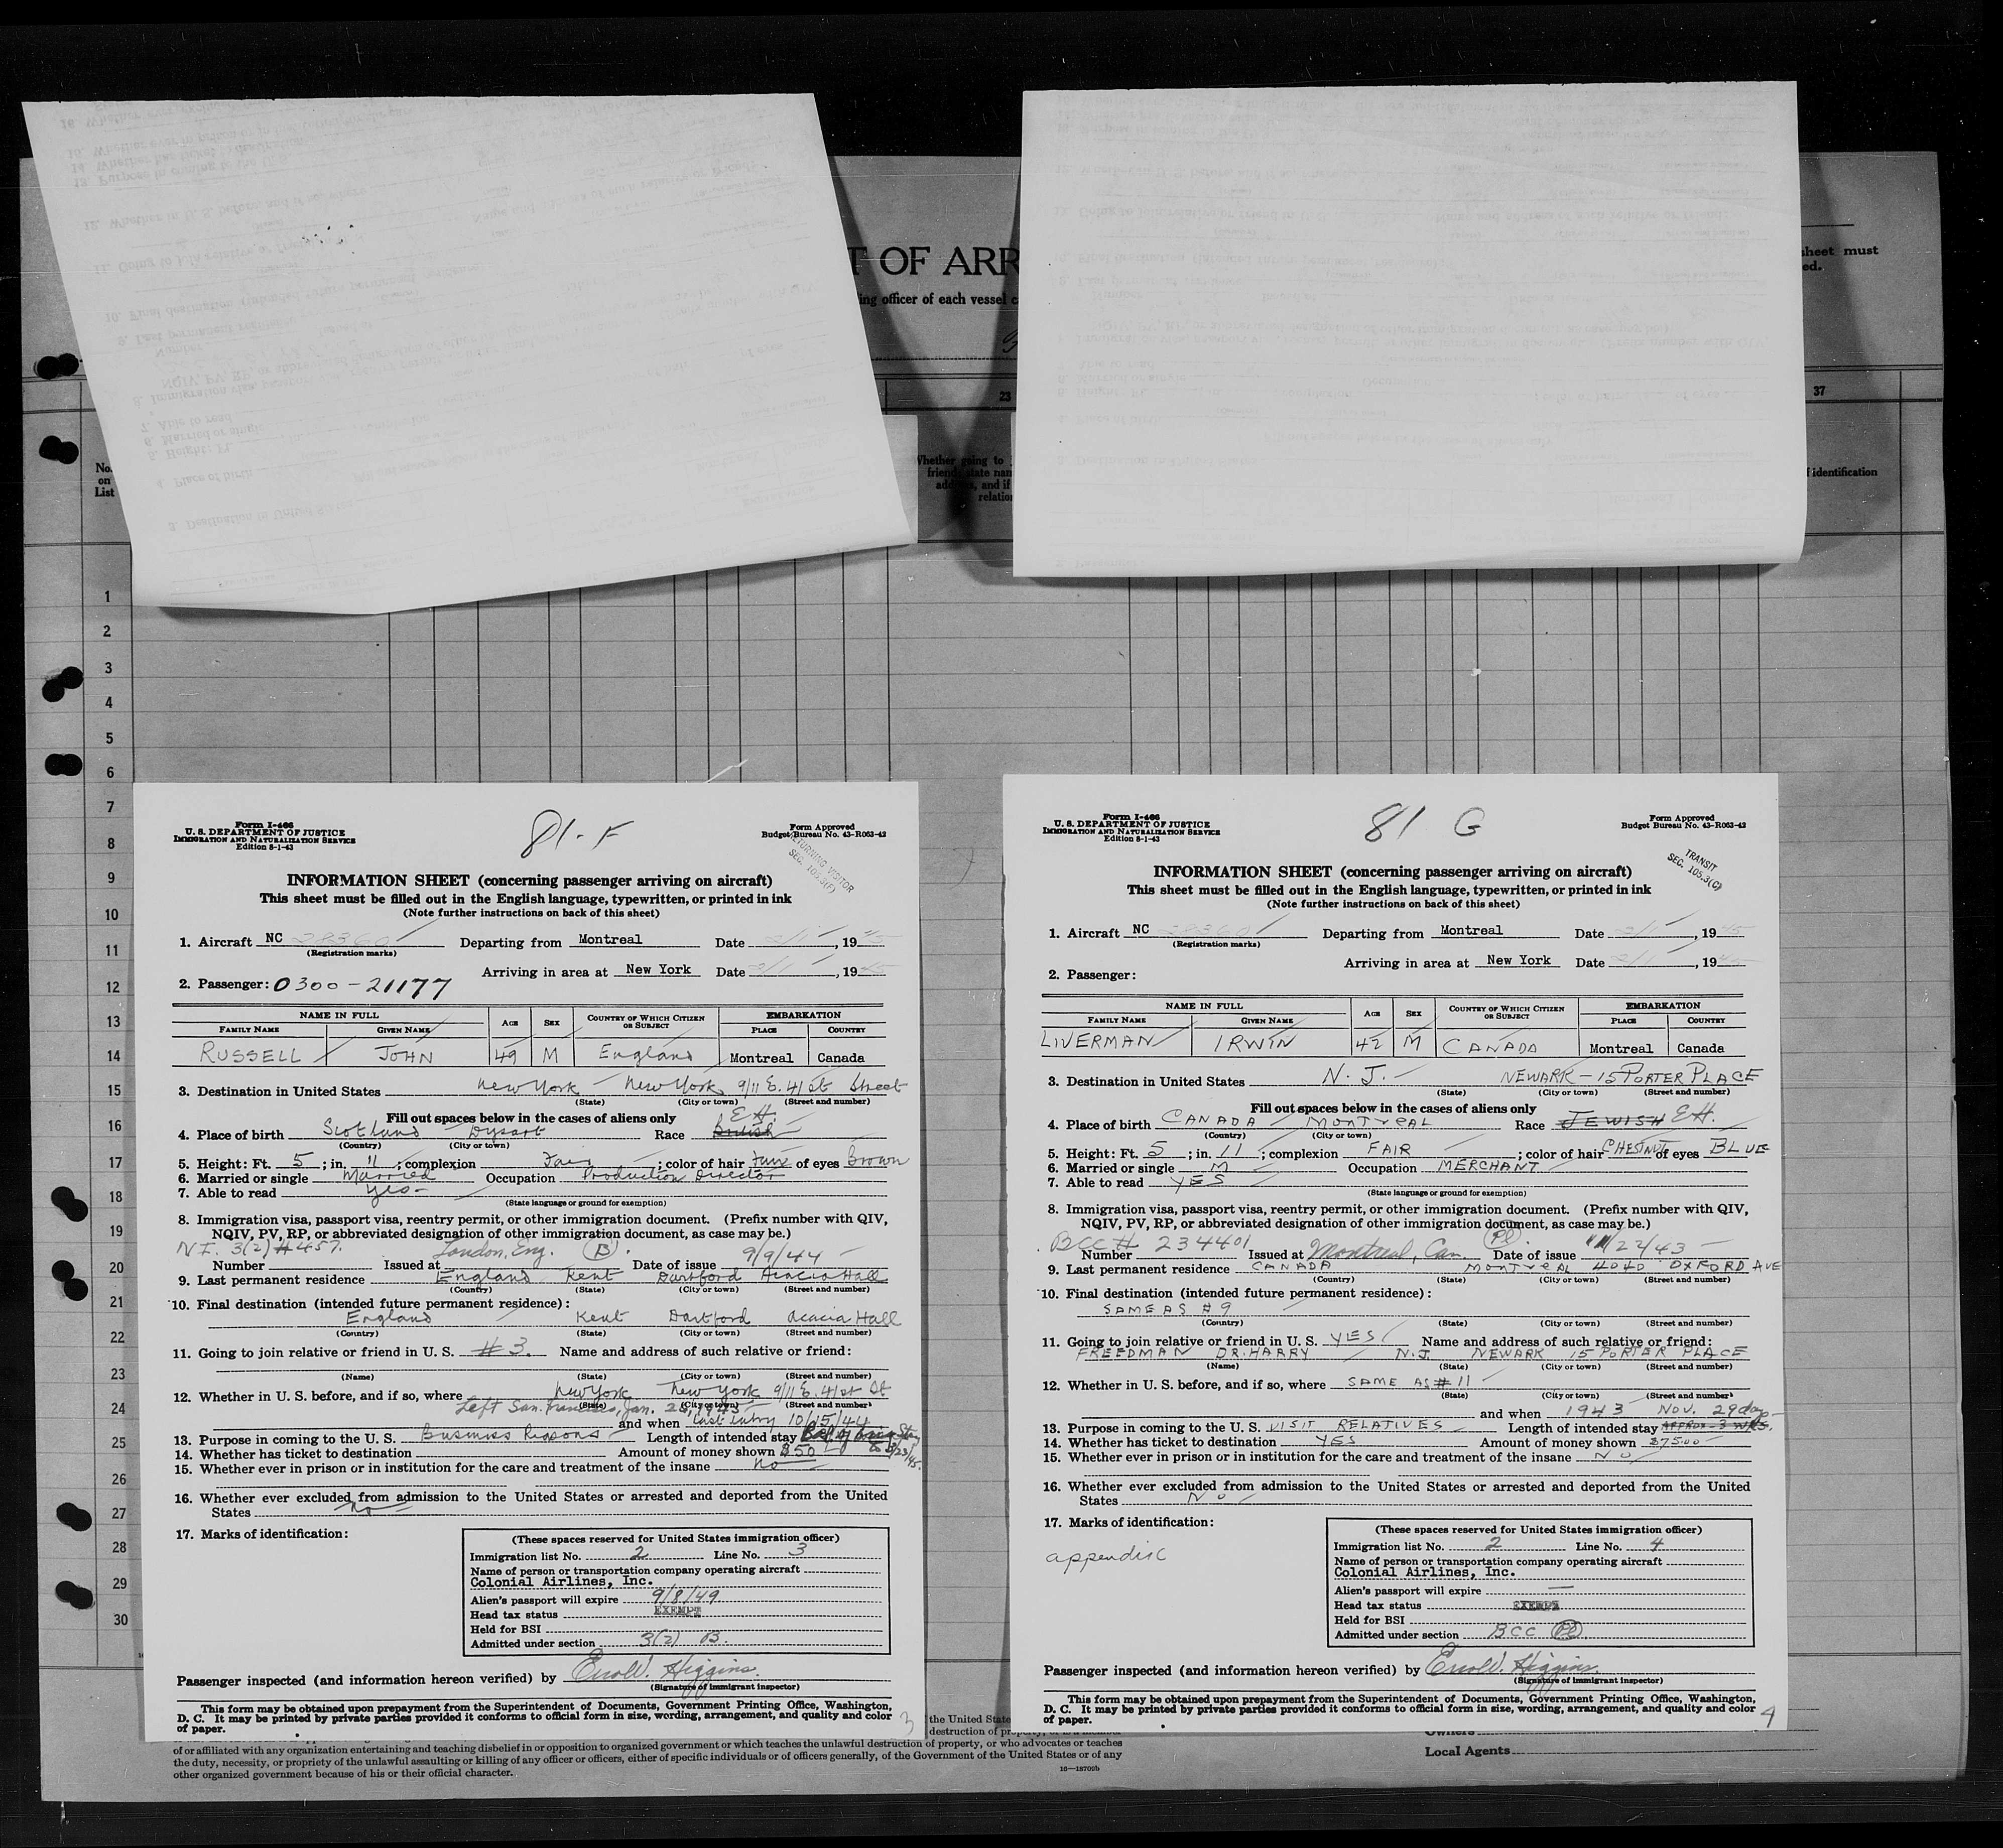 T OF ARR
ing officer of each vessel c
sheet must
ed.
23
37
No.
on
List
Whether going to
friend, state nam
address, and if
relation
f identification
1
2
3
4
5
6
7
8
9
10
11
12
13
14
15
16
17
18
19
20
21
22
23
24
25
26
27
28
29
30
Form I-466
U. S. DEPARTMENT OF JUSTICE
IMMIGRATION AND NATURALIZATION SERVICE
Edition 8-1-43
81-F
Form Approved
Budget Bureau No. 43-R063-42
RETURNING VISITOR
SEC. 105.3(F)
INFORMATION SHEET (concerning passenger arriving on aircraft)
This sheet must be filled out in the English language, typewritten, or printed in ink
(Note further instructions on back of this sheet)
1. Aircraft NC 28360 Departing from Montreal Date 2/1, 1945
(Registration marks)
Arriving in area at New York Date 2/1, 1945
2. Passenger: 0300-21177
NAME IN FULL AGE SEX COUNTRY OF WHICH CITIZEN OR SUBJECT EMBARKATION
FAMILY NAME GIVEN NAME PLACE COUNTRY
RUSSELL JOHN 49 M England Montreal Canada
3. Destination in United States New York New York 9/11 E. 41 St Street
(State) (City or town) (Street and number)
Fill out spaces below in the cases of aliens only
4. Place of birth Scotland Dysart Race British EH.
(Country) (City or town)
5. Height: Ft. 5; in. 11; complexion Fair; color of hair Fair of eyes Brown
6. Married or single Married Occupation Production Director
7. Able to read Yes
(State language or ground for exemption)
8. Immigration visa, passport visa, reentry permit, or other immigration document. (Prefix number with QIV,
NQIV, PV, RP, or abbreviated designation of other immigration document, as case may be.)
N.I. 3(2) #457. London, Eng. (B). 9/9/44
Number Issued at Date of issue
9. Last permanent residence England Kent Dartford Acacia Hall
(Country) (State) (City or town) (Street and number)
10. Final destination (intended future permanent residence):
England Kent Dartford Acacia Hall
(Country) (State) (City or town) (Street and number)
11. Going to join relative or friend in U. S. #3. Name and address of such relative or friend:
(Name) (State) (City or town) (Street and number)
12. Whether in U. S. before, and if so, where New York New York 9/11 E. 41st St
(State) (City or town) (Street and number)
Left San Francisco, Jan. 1945
and when Last entry 10/15/44
13. Purpose in coming to the U. S. Business Reasons Length of intended stay
14. Whether has ticket to destination Amount of money shown $50
15. Whether ever in prison or in institution for the care and treatment of the insane No
16. Whether ever excluded from admission to the United States or arrested and deported from the United
States No
17. Marks of identification:
(These spaces reserved for United States immigration officer)
Immigration list No. 2 Line No. 3
Name of person or transportation company operating aircraft
Colonial Airlines, Inc.
Alien's passport will expire 9/8/49
Head tax status EXEMPT
Held for BSI
Admitted under section 3(2) B.
Passenger inspected (and information hereon verified) by Errol W. Higgins.
(Signature of immigrant inspector)
This form may be obtained upon prepayment from the Superintendent of Documents, Government Printing Office, Washington,
D. C. It may be printed by private parties provided it conforms to official form in size, wording, arrangement, and quality and color
of paper.
3
Form I-466
U. S. DEPARTMENT OF JUSTICE
IMMIGRATION AND NATURALIZATION SERVICE
Edition 8-1-43
81 G
Form Approved
Budget Bureau No. 43-R063-42
TRANSIT
SEC. 105.3(G)
INFORMATION SHEET (concerning passenger arriving on aircraft)
This sheet must be filled out in the English language, typewritten, or printed in ink
(Note further instructions on back of this sheet)
1. Aircraft NC 28360 Departing from Montreal Date 2/1, 1945
(Registration marks)
Arriving in area at New York Date 2/1, 1945
2. Passenger:
NAME IN FULL AGE SEX COUNTRY OF WHICH CITIZEN OR SUBJECT EMBARKATION
FAMILY NAME GIVEN NAME PLACE COUNTRY
LIVERMAN IRWIN 42 M CANADA Montreal Canada
3. Destination in United States N. J. NEWARK - 15 PORTER PLACE
(State) (City or town) (Street and number)
Fill out spaces below in the cases of aliens only
4. Place of birth CANADA MONTREAL Race JEWISH EH.
(Country) (City or town)
5. Height: Ft. 5; in. 11; complexion FAIR; color of hair CHESTNUT of eyes BLUE
6. Married or single M Occupation MERCHANT
7. Able to read YES
(State language or ground for exemption)
8. Immigration visa, passport visa, reentry permit, or other immigration document. (Prefix number with QIV,
NQIV, PV, RP, or abbreviated designation of other immigration document, as case may be.)
BCC # 234401 Montreal, Can. (Pl). 11/22/43
Number Issued at Date of issue
9. Last permanent residence CANADA MONTREAL 4040 OXFORD AVE
(Country) (State) (City or town) (Street and number)
10. Final destination (intended future permanent residence):
SAME AS #9
(Country) (State) (City or town) (Street and number)
11. Going to join relative or friend in U. S. YES Name and address of such relative or friend:
FREEDMAN DR. HARRY N.J. NEWARK 15 PORTER PLACE
(Name) (State) (City or town) (Street and number)
12. Whether in U. S. before, and if so, where SAME AS #11
(State) (City or town) (Street and number)
and when 1943 NOV. 29 days
13. Purpose in coming to the U. S. VISIT RELATIVES Length of intended stay APPROX-3 WKS.
14. Whether has ticket to destination YES Amount of money shown $75.00
15. Whether ever in prison or in institution for the care and treatment of the insane NO
16. Whether ever excluded from admission to the United States or arrested and deported from the United
States NO
17. Marks of identification:
appendix
(These spaces reserved for United States immigration officer)
Immigration list No. 2 Line No. 4
Name of person or transportation company operating aircraft
Colonial Airlines, Inc.
Alien's passport will expire —
Head tax status EXEMPT
Held for BSI
Admitted under section BCC (Pl)
Passenger inspected (and information hereon verified) by Errol W. Higgins.
(Signature of immigrant inspector)
This form may be obtained upon prepayment from the Superintendent of Documents, Government Printing Office, Washington,
D. C. It may be printed by private parties provided it conforms to official form in size, wording, arrangement, and quality and color
of paper.
4
the United State
destruction of property,
of or affiliated with any organization entertaining and teaching disbelief in or opposition to organized government or which teaches the unlawful destruction of property, or who advocates or teaches
the duty, necessity, or propriety of the unlawful assaulting or killing of any officer or officers, either of specific individuals or of officers generally, of the Government of the United States or of any
other organized government because of his or their official character.
16—18700b
Owners
Local Agents